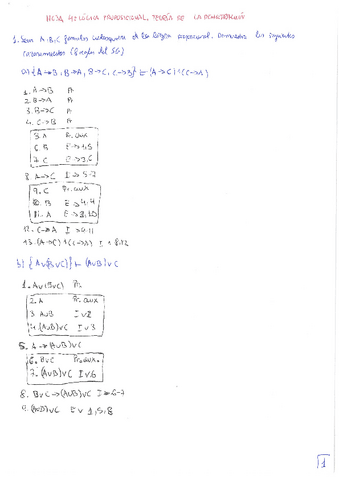 HOJA 4: LÓGICA PROPOSICIONAL, TEORÍA DE LA DEMOSTRACIÓN
1. Sean A, B, C fórmulas cualesquiera de la lógica proposicional. Demuestra los siguientes
razonamientos (8 reglas del SG)
a) {A→B, B→A, B→C, C→B} ⊢ (A→C)∧(C→A)
1. A→B P.
2. B→A P.
3. B→C P.
4. C→B P.
5. A Pr. aux
6. B E→1,5
7. C E→3,6
8. A→C I→5-7
9. C Pr. aux
10. B E→4,9
11. A E→2,10
12. C→A I→9-11
13. (A→C)∧(C→A) I∧8,12
b) {A∨(B∨C)} ⊢ (A∨B)∨C
1. A∨(B∨C) Pr.
2. A Pr. aux
3. A∨B I∨2
4. (A∨B)∨C I∨3
5. A→(A∨B)∨C
6. B∨C Pr. aux.
7. (A∨B)∨C I∨6
8. B∨C→(A∨B)∨C I→6-7
9. (A∨B)∨C E∨1,5,8
1